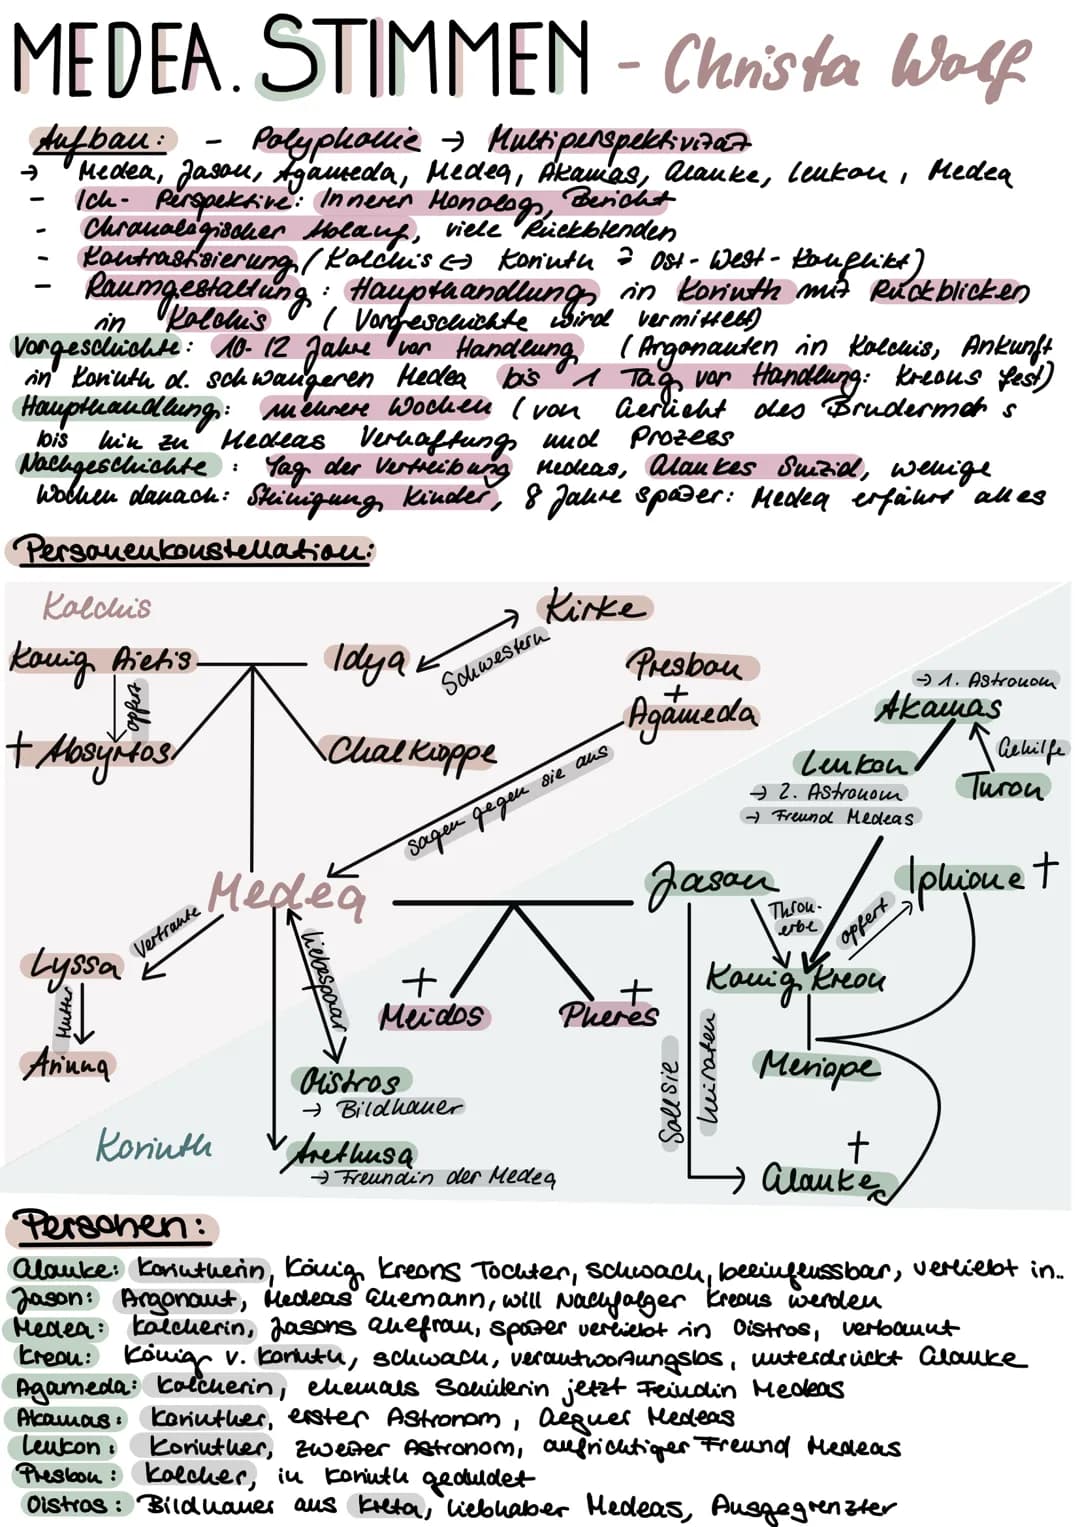 MEDEA. STIMMEN - Christa Wolf
Aufbau: - Polyphonie → Multiperspektivität
→ Medea, Jason, Agameda, Medea, Akamas, Glauke, Leukon, Medea
- Ich-Perspektive: Innerer Monolog, Bericht
- Chronologischer Ablauf, viele Rückblenden
- Kontrastisierung (Kolchis ↔ Korinth ≙ Ost-West-Konflikt)
- Raumgestaltung: Haupthandlung in Korinth mit Rückblicken
in Kolchis (Vorgeschichte wird vermittelt)
Vorgeschichte: 10-12 Jahre vor Handlung (Argonauten in Kolchis, Ankunft
in Korinth d. schwangeren Medea bis 1 Tag vor Handlung: Kreons Fest)
Haupthandlung: mehrere Wochen (von Gerücht des Brudermord s
bis hin zu Medeas Verhaftung und Prozess
Nachgeschichte: Tag der Vertreibung Medeas, Glaukes Suizid, wenige
Wochen danach: Steinigung Kinder, 8 Jahre später: Medea erfährt alles
Personenkonstellation:
Kolchis
Kirke
König Aietis
Idya
Schwestern
Presbon
+
Agameda
→ 1. Astronom
Akamas
opfert
† Absyrtos
Chalkioppe
sagen gegen sie aus
Leukon
→ 2. Astronom
→ Freund Medeas
Gehilfe
Turon
Medea
Jason
Iphione †
Thron-
erbe
opfert
Vertraute
Lyssa
Liebespaar
König Kreon
Mutter
Arinna
+
Meidos
+
Pheres
Meriope
Soll sie
heiraten
Oistros
→ Bildhauer
Korinth
Arethusa
→ Freundin der Medea
+
Glauke
Personen:
Glauke: Korintherin, König Kreons Tochter, schwach, beeinflussbar, verliebt in..
Jason: Argonaut, Medeas Ehemann, will Nachfolger Kreons werden
Medea: Kolcherin, Jasons Ehefrau, später verliebt in Oistros, verbannt
Kreon: König v. Korinth, schwach, verantwortungslos, unterdrückt Glauke
Agameda: Kolcherin, ehemals Schülerin jetzt Feindin Medeas
Akamas: Korinther, erster Astronom, Gegner Medeas
Leukon: Korinther, zweiter Astronom, aufrichtiger Freund Medeas
Presbon: Kolcher, in Korinth geduldet
Oistros: Bildhauer aus Kreta, Liebhaber Medeas, Ausgegrenzter